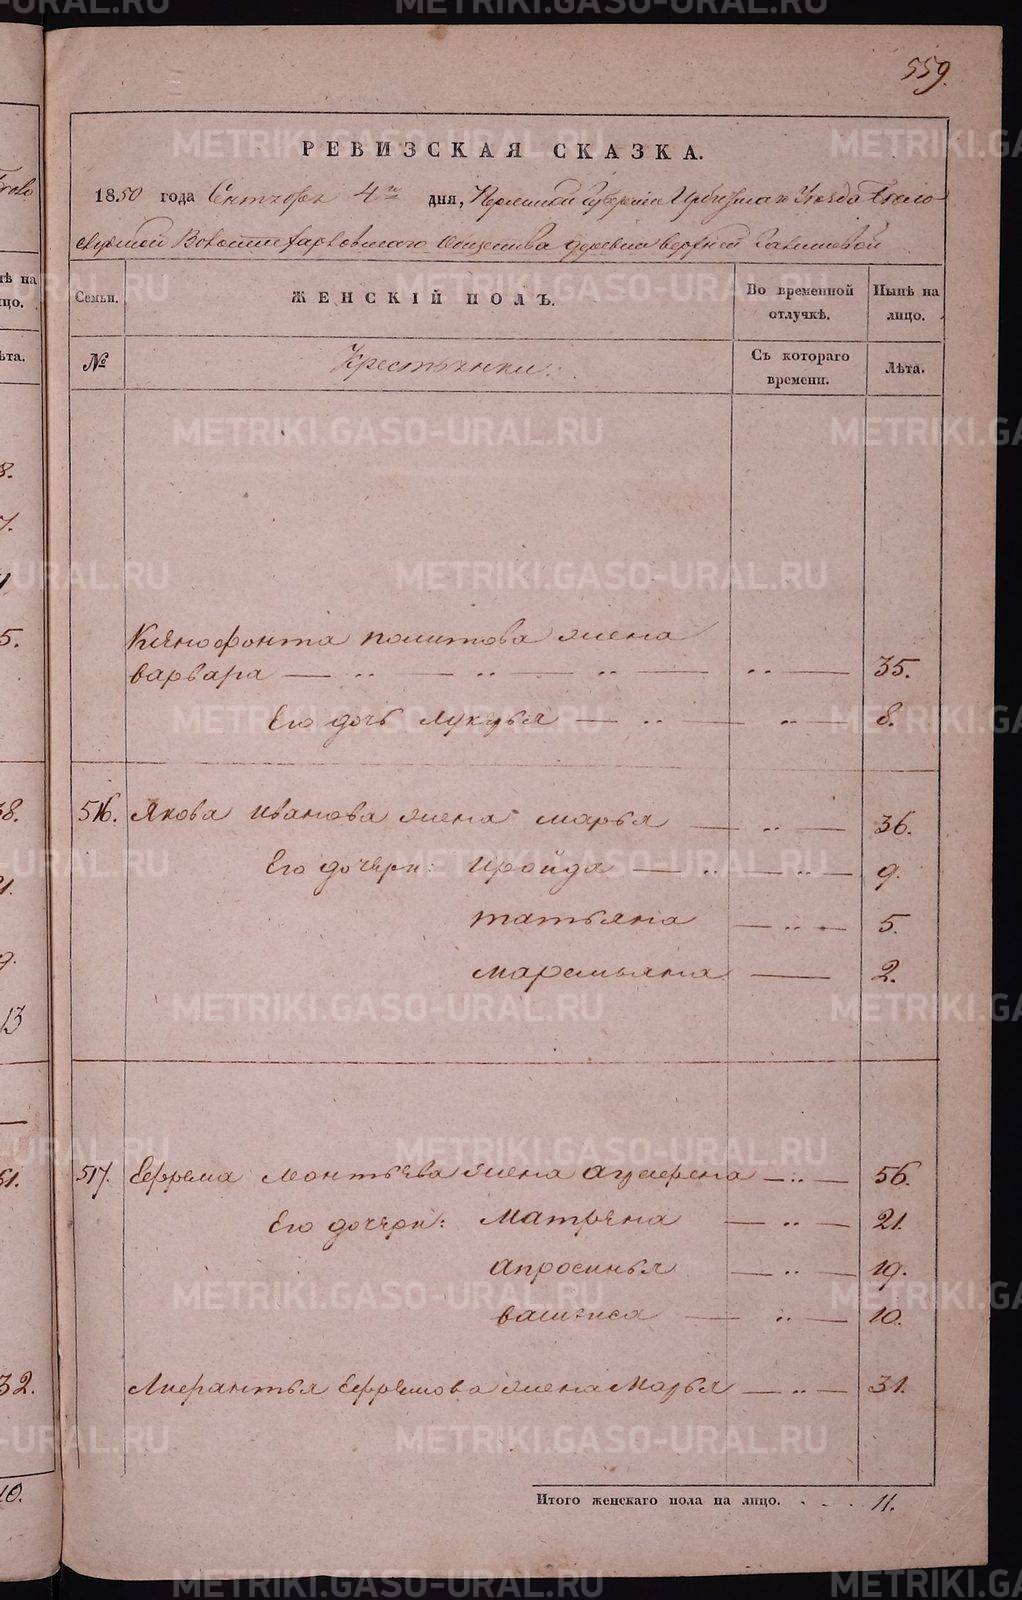 559.
РЕВИЗСКАЯ СКАЗКА.
1850 года Сентября 4го дня, Пермской Губерніи Ирбитскаго Уезда Бѣло
слудской Волости Харловскаго Общества деревни верхней
Семьи. ЖЕНСКІЙ ПОЛЪ. Во временной отлучкѣ. Нынѣ на лицо.
№ Крестьянки. Съ котораго времени. Лѣта.
Ксенофонта политова жена
варвара 35.
Его дочь лукерья 8.
516. Якова иванова жена марья 36.
Его дочери: ироида 9.
татьяна 5.
маремьяна 2.
517. Ефрема леонтьева жена агрефена 56.
Его дочери: матрена 21.
апросинья 19.
василиса 10.
Лаврантья Ефремова жена марья 31.
Итого женскаго пола на лицо. 11.
METRIKI.GASO-URAL.RU